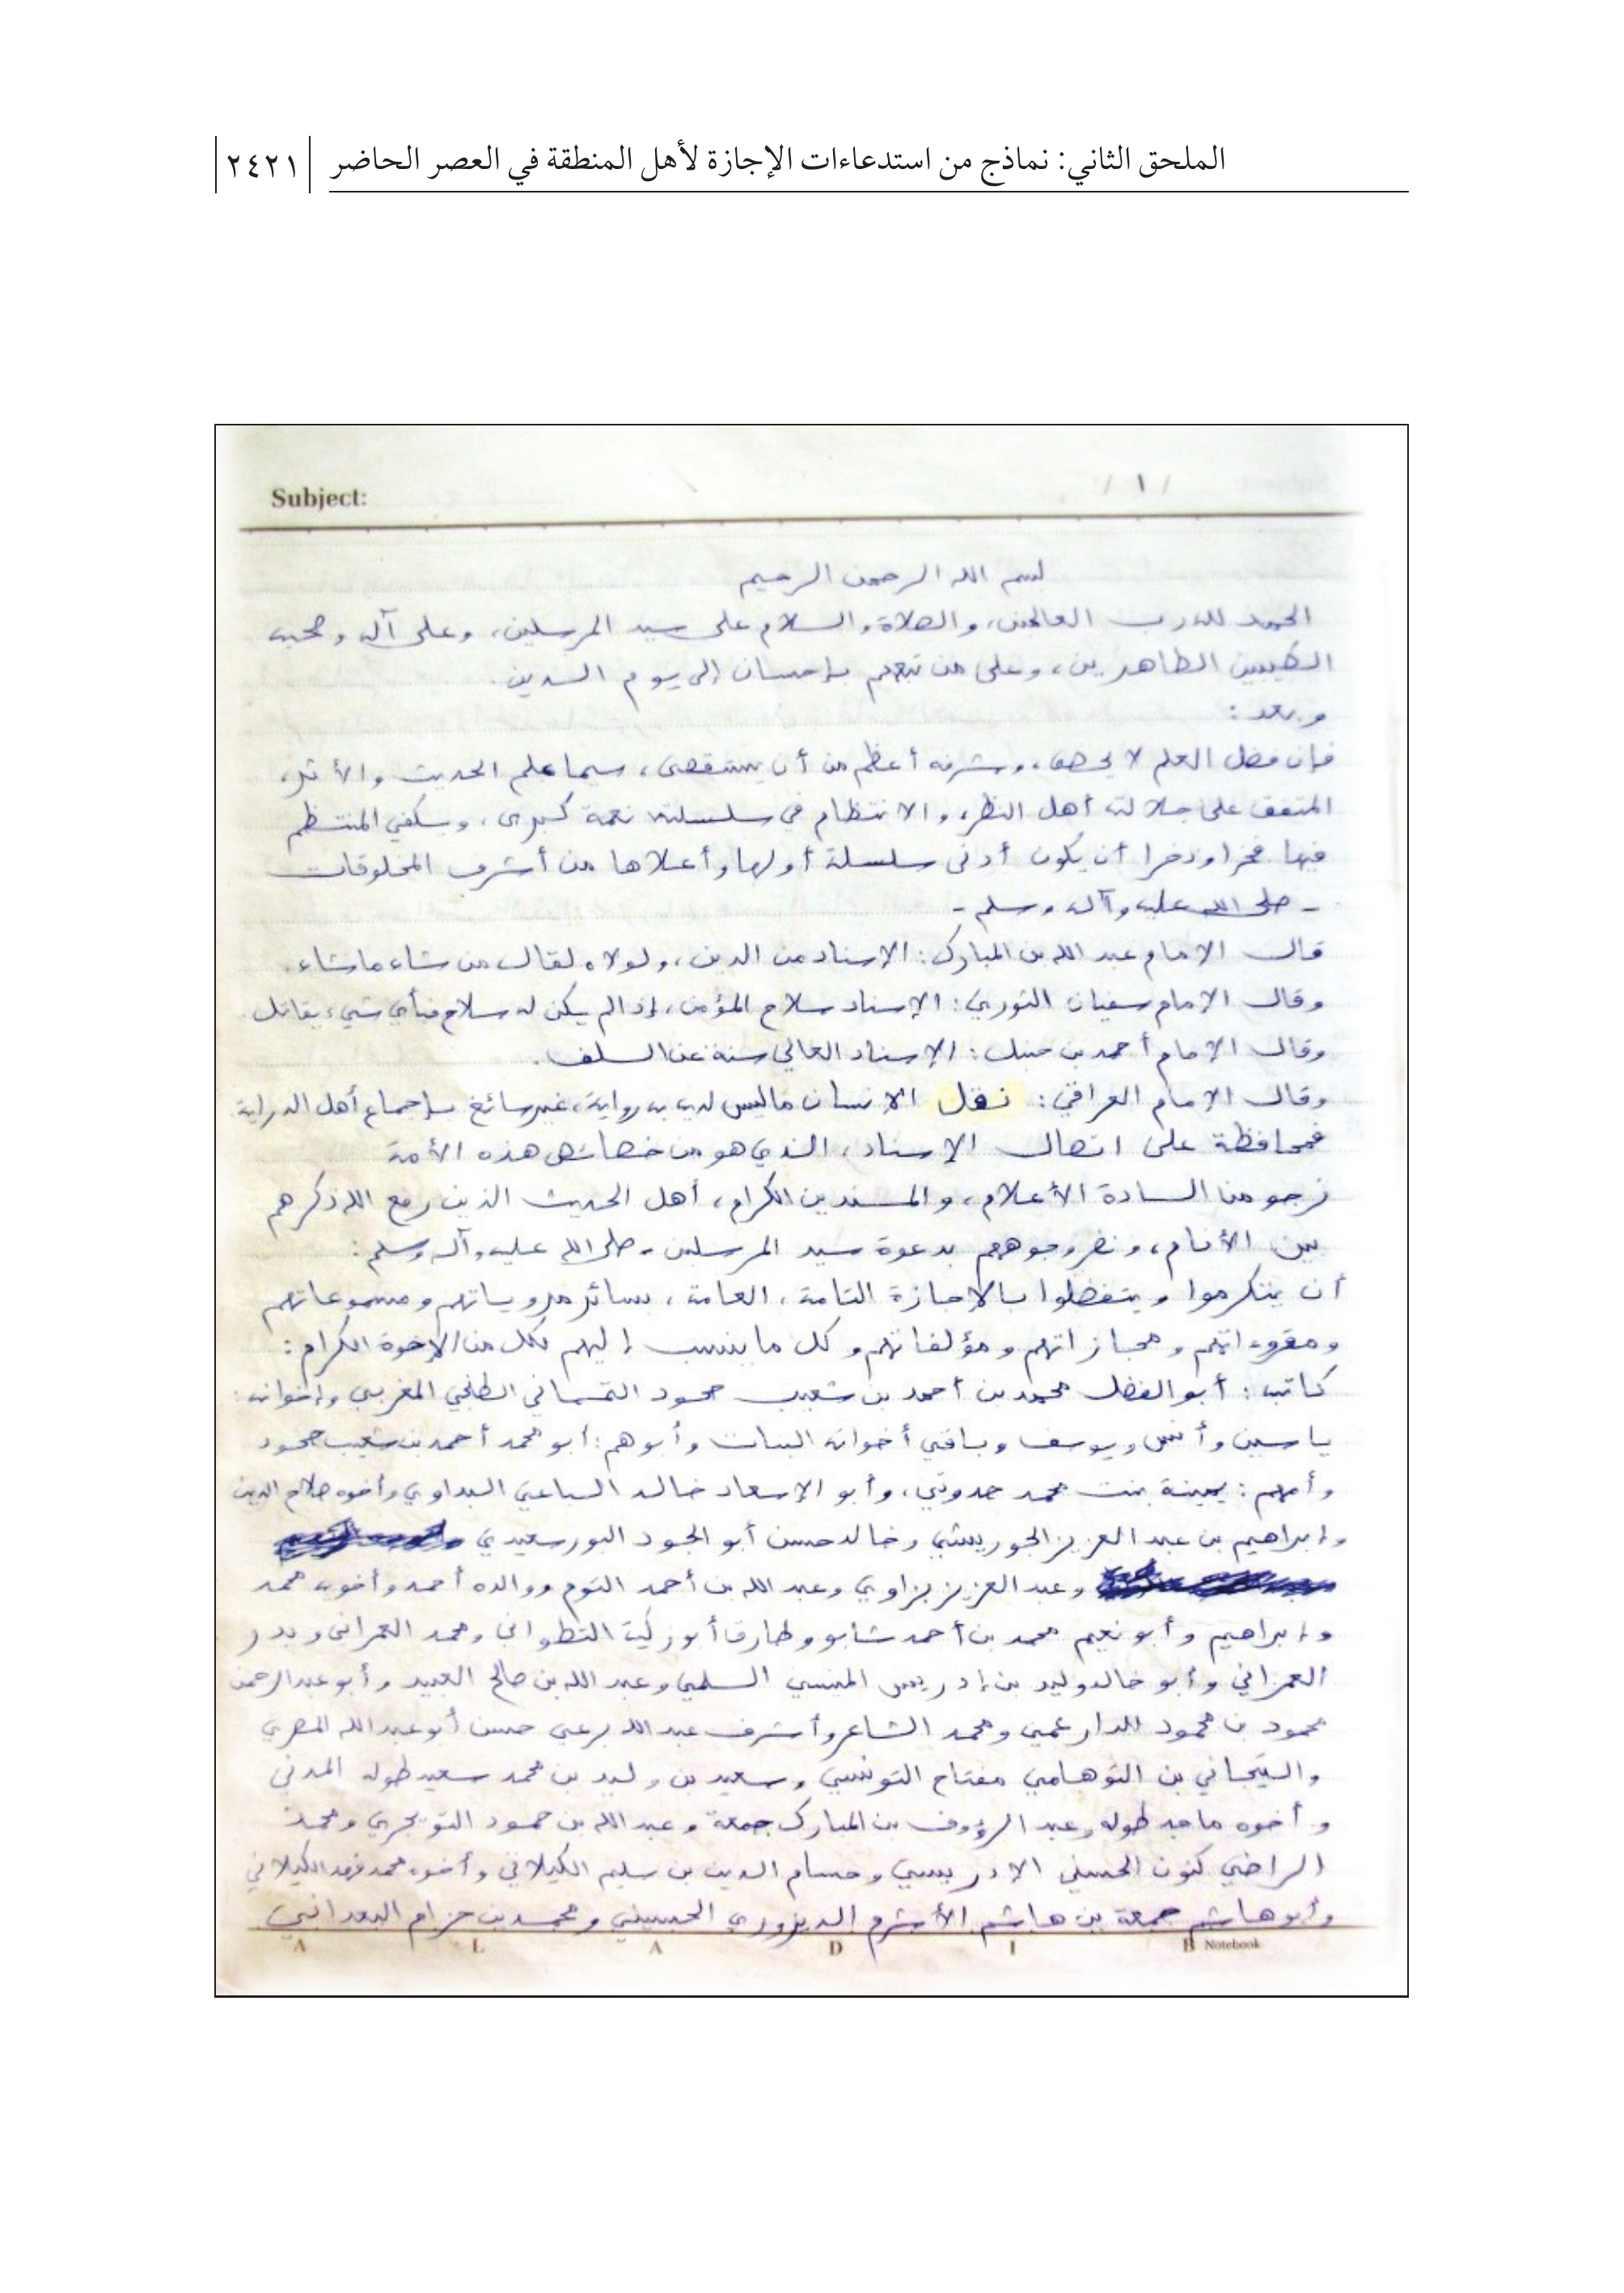 الملحق الثاني: نماذج من استدعاءات الإجازة لأهل المنطقة في العصر الحاضر ٢٤٢١
Subject: / ١ /
بسم الله الرحمن الرحيم
الحمد لله رب العالمين، والصلاة والسلام على سيد المرسلين، وعلى آله وصحبه
الطيبين الطاهرين، وعلى من تبعهم بإحسان إلى يوم الدين.
وبعد:
فإن فضل العلم لا يحصى، وشرفه أعظم من أن يستقصى، سيما علم الحديث والأثر،
المتفق على جلالته أهل النظر، والانتظام في سلسلته نعمة كبرى، ويكفي المنتظم
فيها فخرا وذخرا أن يكون أدنى سلسلة أولها وأعلاها من أشرف المخلوقات
- صلى الله عليه وآله وسلم -
قال الإمام عبد الله بن المبارك: الإسناد من الدين، ولولاه لقال من شاء ما شاء.
وقال الإمام سفيان الثوري: الإسناد سلاح المؤمن، إذا لم يكن له سلاح فبأي شيء يقاتل.
وقال الإمام أحمد بن حنبل: الإسناد العالي سنة عن السلف.
وقال الإمام العراقي: نقل الإنسان ما ليس لديه به رواية، غير سائغ بإجماع أهل الدراية
فمحافظة على اتصال الإسناد، الذي هو من خصائص هذه الأمة
نرجو من السادة الأعلام، والمسندين الكرام، أهل الحديث الذين رفع الله ذكرهم
بين الأنام، ونضر وجوههم بدعوة سيد المرسلين - صلى الله عليه وآله وسلم:
أن يتكرموا ويتفضلوا بالإجازة التامة، العامة، بسائر مروياتهم ومسموعاتهم
ومقروءاتهم ومجازاتهم ومؤلفاتهم وكل ما ينسب إليهم لكل من الإخوة الكرام:
كاتبه: أبو الفضل محمد بن أحمد بن شعيب محمود التمسماني الطنجي المغربي وإخوانه:
ياسين وأنس ويوسف وباقي أخواته البنات وأبوهم: أبو محمد أحمد بن شعيب محمود
وأمهم: يمينة بنت محمد حدوتي، وأبو الإسعاد خالد السباعي البداوي وأخوه صلاح الدين
وإبراهيم بن عبد العزيز الجوريشي وخالد حسن أبو الجود البورسعيدي
وعبد العزيز بزاوي وعبد الله بن أحمد التوم ووالده أحمد وأخوه محمد
وإبراهيم وأبو نعيم محمد بن أحمد شابو وطارق أبوزكية التطواني ومحمد العمراني وبدر
العمراني وأبو خالد وليد بن إدريس المنيسي السلمي وعبد الله بن صالح العبيد وأبو عبد الرحمن
محمود بن محمود ومحمد الشاعر وأشرف عبد الله برعي حسن أبو عبد الله المصري
والتيجاني بن التوهامي مفتاح التونسي وسعيد بن وليد بن محمد سعيد طوله المدني
وأخوه ماجد طوله وعبد الرؤوف بن المبارك جمعة وعبد الله بن حمود التويجري ومحمد
الراضي كنون الحسني الإدريسي وحسام الدين بن سليم الكيلاني وأخوه محمد فهد الكيلاني
وأبو هاشم جمعة بن هاشم الأشرم الديزوري الحسيني ومحمد بن حزام البعداني
A L A D I B Notebook